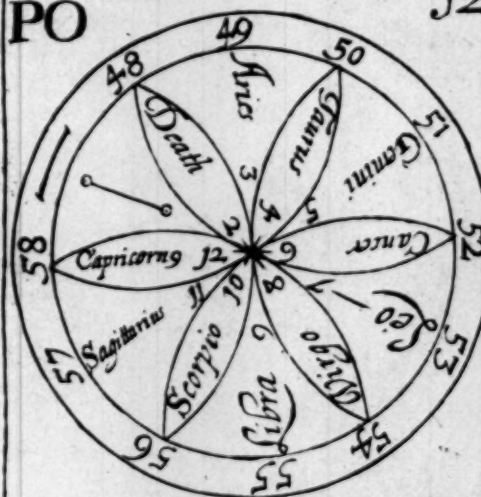 PO
48
49
50
51
52
53
54
55
56
57
58
Death
Aries
Taurus
Gemini
Cancer
Leo
Virgo
Libra
Scorpio
Sagittarius
Capricorn9
2
3
4
5
6
7
8
9
10
11
12